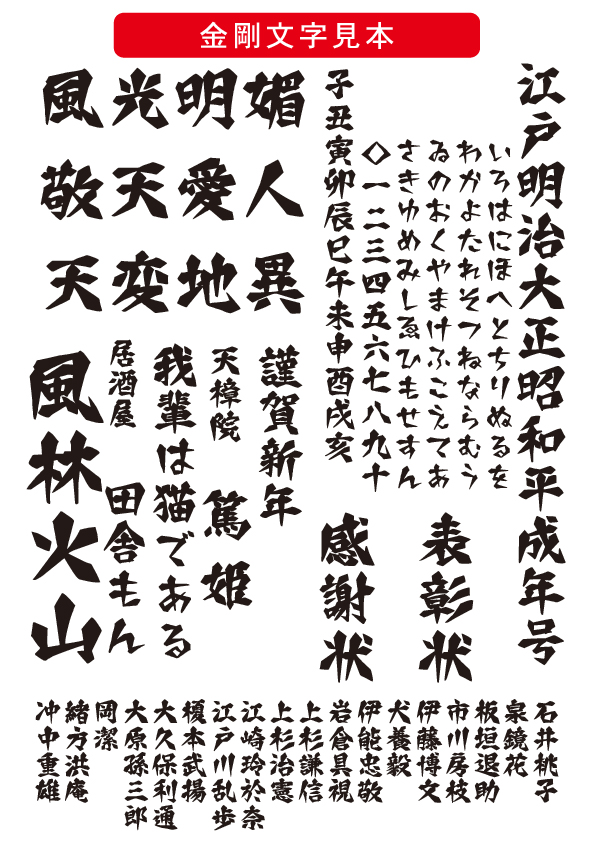 金剛文字見本
江戸明治大正昭和平成年号
いろはにほへとちりぬるを
わかよたれそつねならむう
ゐのおくやまけふこえてあ
さきゆめみしゑひもせすん
◇一二三四五六七八九十
子丑寅卯辰巳午未申酉戌亥
表彰状
感謝状
媚人異
明愛地
光天変
風敬天
謹賀新年
天樟院 篤姫
我輩は猫である
居酒屋 田舎もん
風林火山
石井桃子
泉鏡花
板垣退助
市川房枝
伊藤博文
犬養毅
伊能忠敬
岩倉具視
上杉謙信
上杉治憲
江崎玲於奈
江戸川乱歩
榎本武揚
大久保利通
大原孫三郎
岡潔
緒方洪庵
沖中重雄